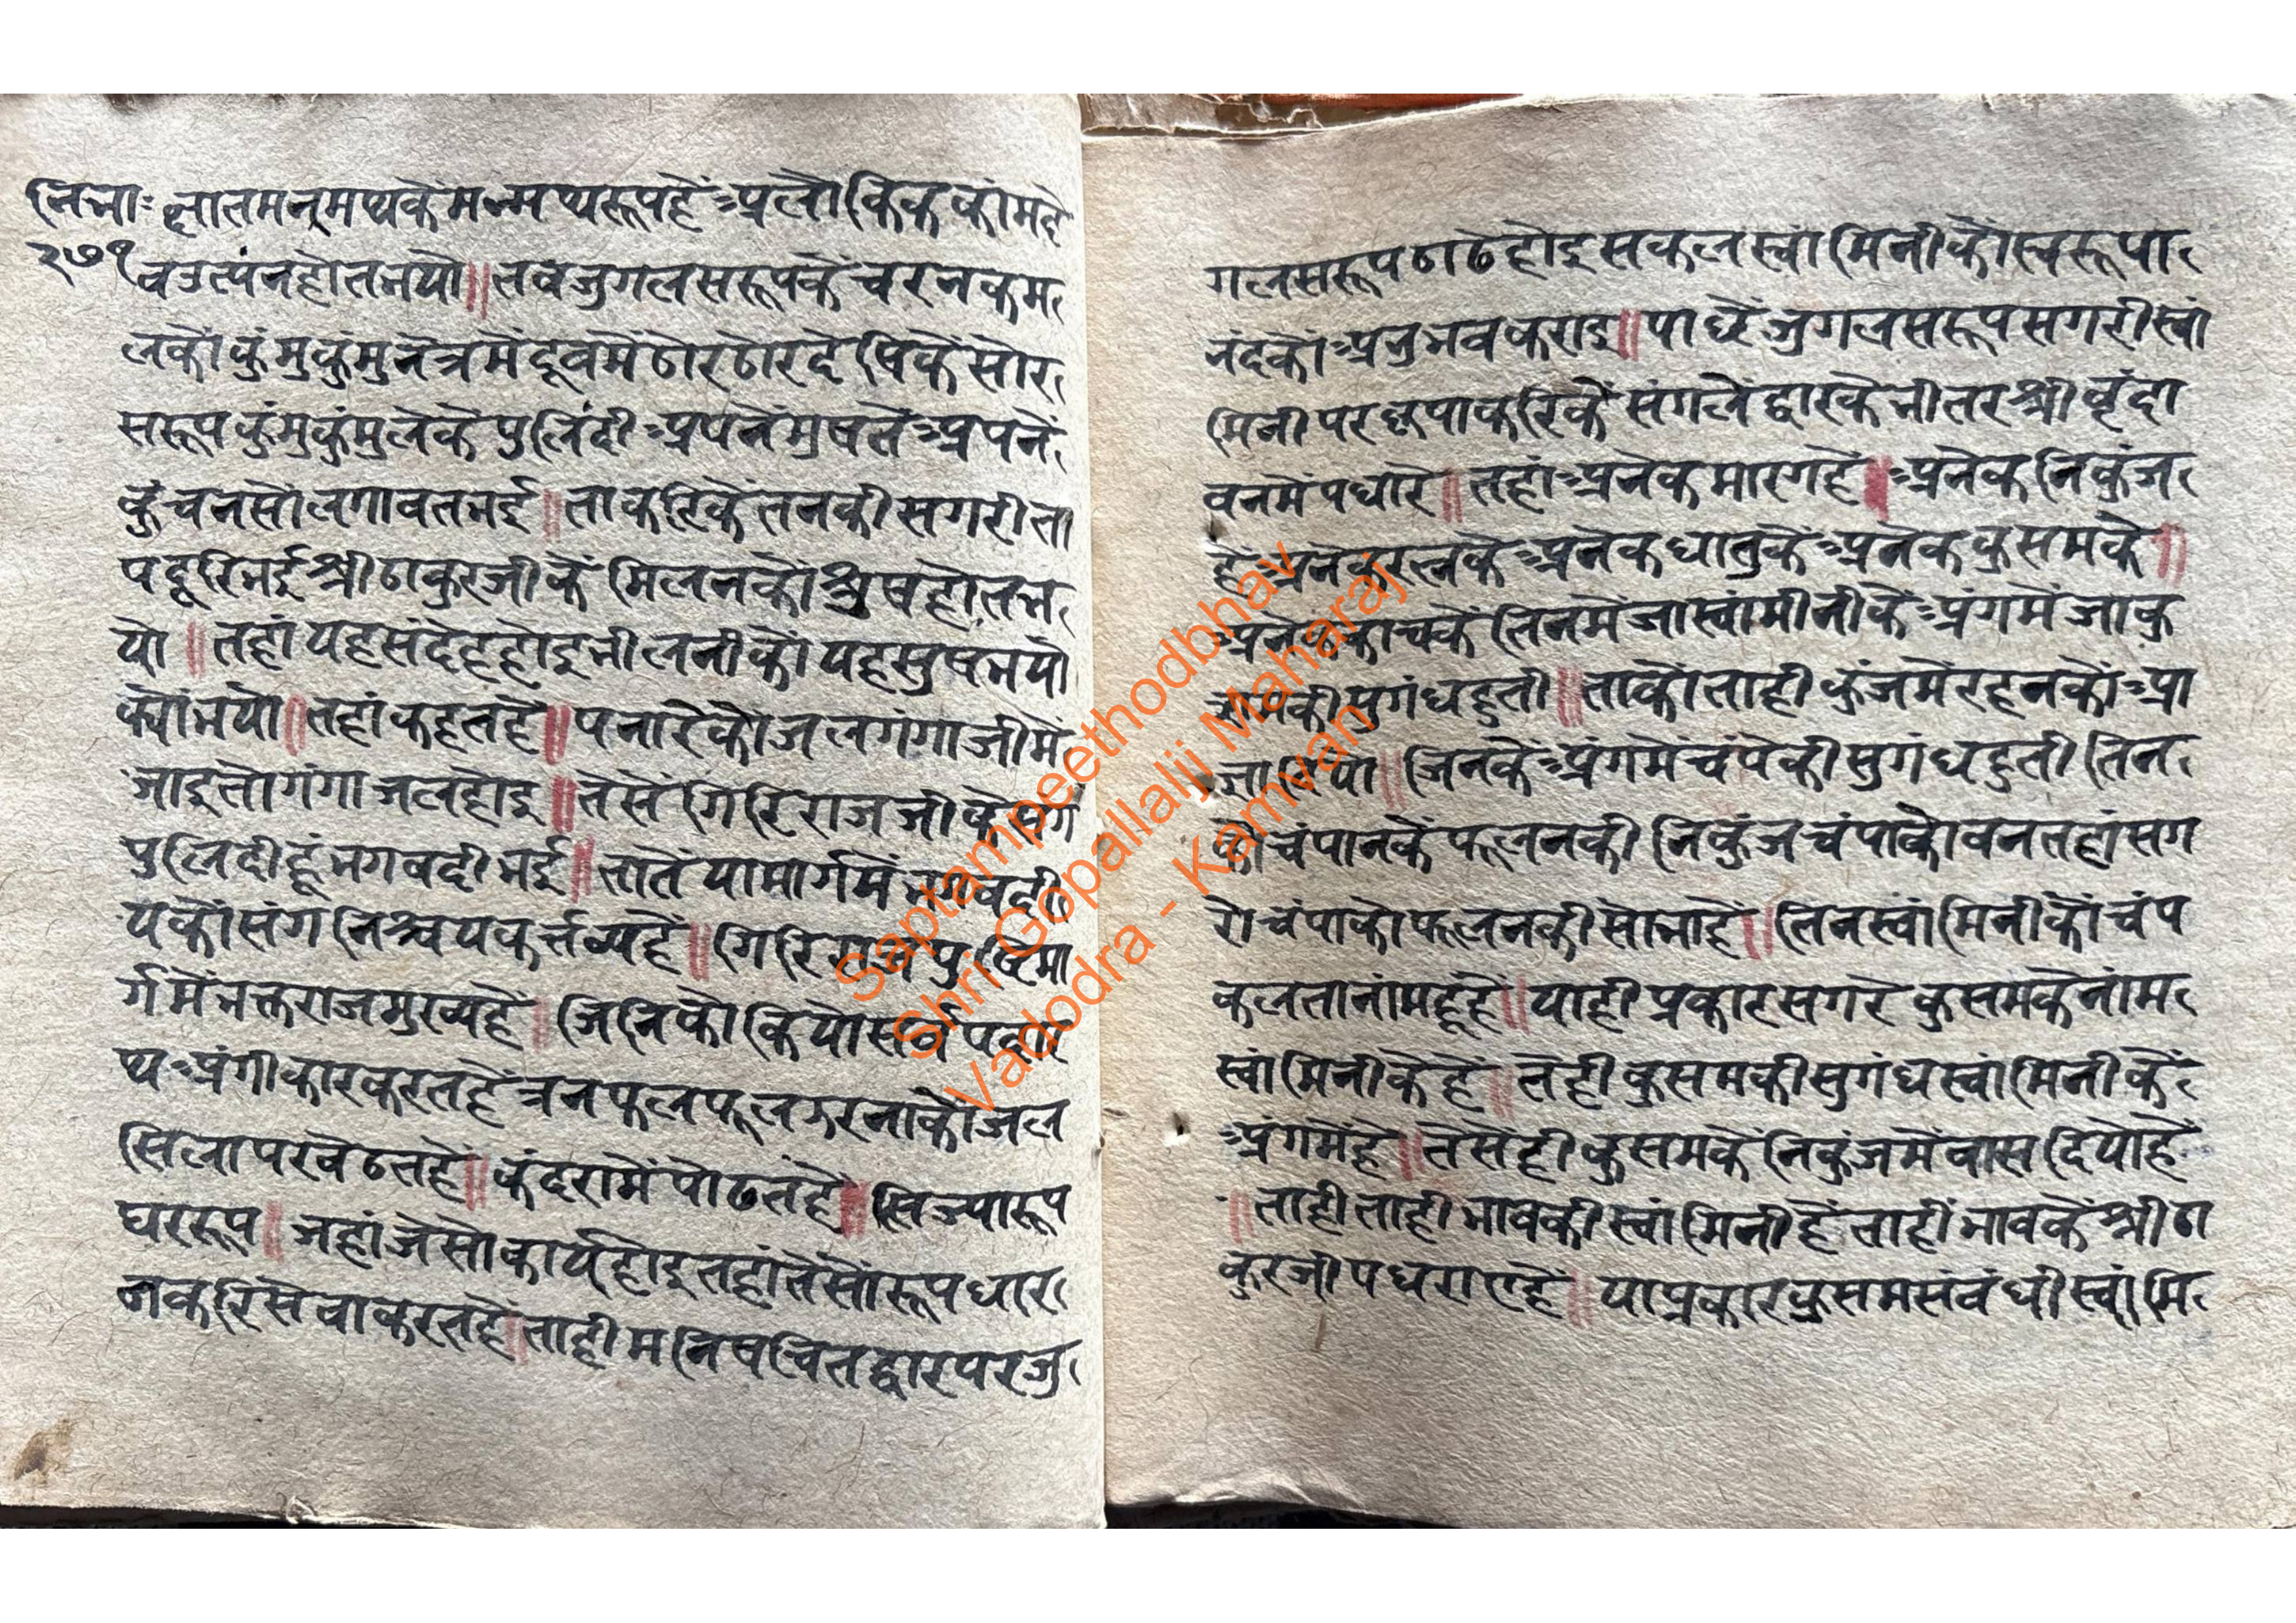 नि.भाः सातमनमथकेंमन्मथरूपहें अलौकिककांमदे
२७१ वउत्पंनहोतभयो॥ तबजुगलसरूपकेंचरनकम
लकोंकुंमुकुंमुनेत्रमेंदूबमेंठोरठोरदेषिकेंसोर
सरूपकुंमुकुंमुलेकेंपुलिंदीअपनेंमुषतेंअपनें
कुंचनसोंलगावतभई॥ ताकरिकेंतनकीसगरीता
पदूरिभईश्रीठाकुरजीकेंमिलनकोसुषहोतभ
यो॥ तहांयहसंदेहहोइभीलनीकोंयहसुषभयो
क्योंभयो॥तहांकहतहें॥पनारेकोजलगंगाजीमें
जाइतोगंगाजलहोइ॥तेसेंगिरिराजजीकेसंग
पुलिंदीहूंभगवदीभई॥तातेंयामार्गमेंभगवदी
यकोंसंगनिश्चयकर्त्तव्यहें॥गिरिराजपुष्टिमा
र्गमेंभक्तराजमुख्यहें॥जिनिकोकियोसर्वपदार
थअंगीकारकरतहेंत्रनफलफूलझरनाकोजल
सिलापरबेठतहें॥कंदरामेंपोढतंहें॥सिज्यारूप
घररूप॥जहांजेसोकार्यहोइतहांतेसोंरूपधार
नकरिसेवाकरतहें॥ताहीमनिषचितद्वारपरजु
गलसरूपठाढेहोइसकलस्वांमिनीकोंस्वरूपा
नंदकोंअनुभवकराइ॥पाछेंजुगलसरूपसगरीस्वां
मिनीपरकृपाकरिकेंसंगलेंद्वारकेभीतरश्रीवृंदा
वनमेंपधारे॥तहांअनेकमारगहें॥अनेकनिकुंज
हेंअनेकरत्नकेअनेकधातुकेंअनेककुसमके॥
अनेककाचकेंतिनमेंजास्वांमीनीकेंअंगमेंजाकु
समकीसुगंधहुती॥ताकोंताहीकुंजमेंरहनकोंआ
ज्ञादियो॥जिनकेंअंगमेंचंपेकीसुगंधहुतीतिन
कोंचंपानकेंफूलनकीनिकुंजचंपाकोवनतहांसग
रोचंपाकोफूलनकीसोभाहें॥तिनस्वांमिनीकोंचंप
कलतानांमहूंहें॥याहीप्रकारसगरेकुसमकेनांम
स्वांमिनीकेहें॥तेहीकुसमकीसुगंधस्वांमिनीकें
अंगमेंहें॥तेसेंहीकुसमकेंनिकुंजमेंवासदियोहें
॥ताहीताहीभावकीस्वांमिनीहेंताहींभावकेंश्रीठा
कुरजीपधराएहें॥याप्रकारकुसमसंबंधीस्वांमि
Saptampeethodbhav
Shri Gopallalji Maharaj
Vadodra - Kamvan